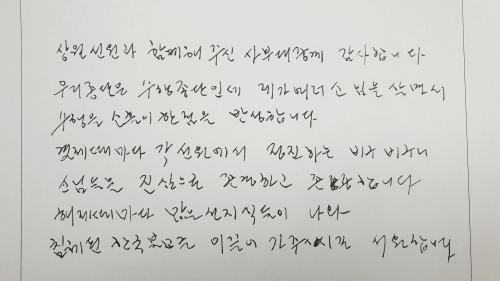 상월선원과 함께해 주신 사부대중께 감사합니다
우리종단은 수행종단인데 제가 비며리 소임을 살면서
수행을 소홀이 한 점을 반성합니다
결제때마다 각 선원에서 정진하는 비구 비구니
스님들을 진심으로 존경하고 존중합니다
해제때마다 많은 선지식들이 나와
침체된 한국불교를 이끌어 가주시시길 서원합니다